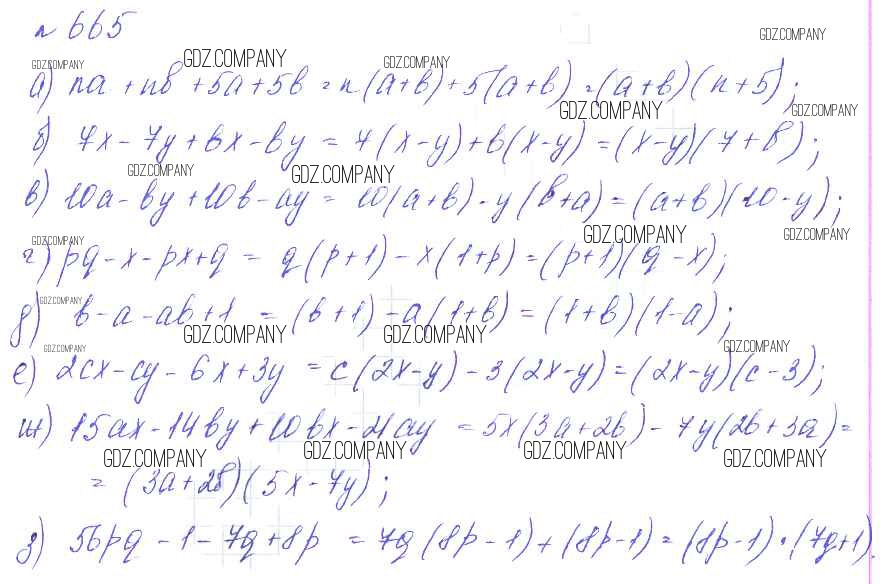 № 665
GDZ.COMPANY
GDZ.COMPANY GDZ.COMPANY GDZ.COMPANY
а) na + nb + 5a + 5b = n(a+b) + 5(a+b) = (a+b)(n+5);
GDZ.COMPANY GDZ.COMPANY
б) 7x - 7y + bx - by = 7(x-y) + b(x-y) = (x-y)(7+b);
GDZ.COMPANY GDZ.COMPANY
в) 10a - by + 10b - ay = 10(a+b) - y(b+a) = (a+b)(10-y);
GDZ.COMPANY GDZ.COMPANY GDZ.COMPANY
г) pq - x - px + q = q(p+1) - x(1+p) = (p+1)(q-x);
GDZ.COMPANY
д) b - a - ab + 1 = (b+1) - a(1+b) = (1+b)(1-a);
GDZ.COMPANY GDZ.COMPANY
GDZ.COMPANY GDZ.COMPANY
е) 2cx - cy - 6x + 3y = c(2x-y) - 3(2x-y) = (2x-y)(c-3);
ж) 15ax - 14by + 10bx - 21ay = 5x(3a+2b) - 7y(2b+3a) =
GDZ.COMPANY GDZ.COMPANY GDZ.COMPANY GDZ.COMPANY
= (3a+2b)(5x-7y);
з) 56pq - 1 - 7q + 8p = 7q(8p-1) + (8p-1) = (8p-1)·(7q+1).